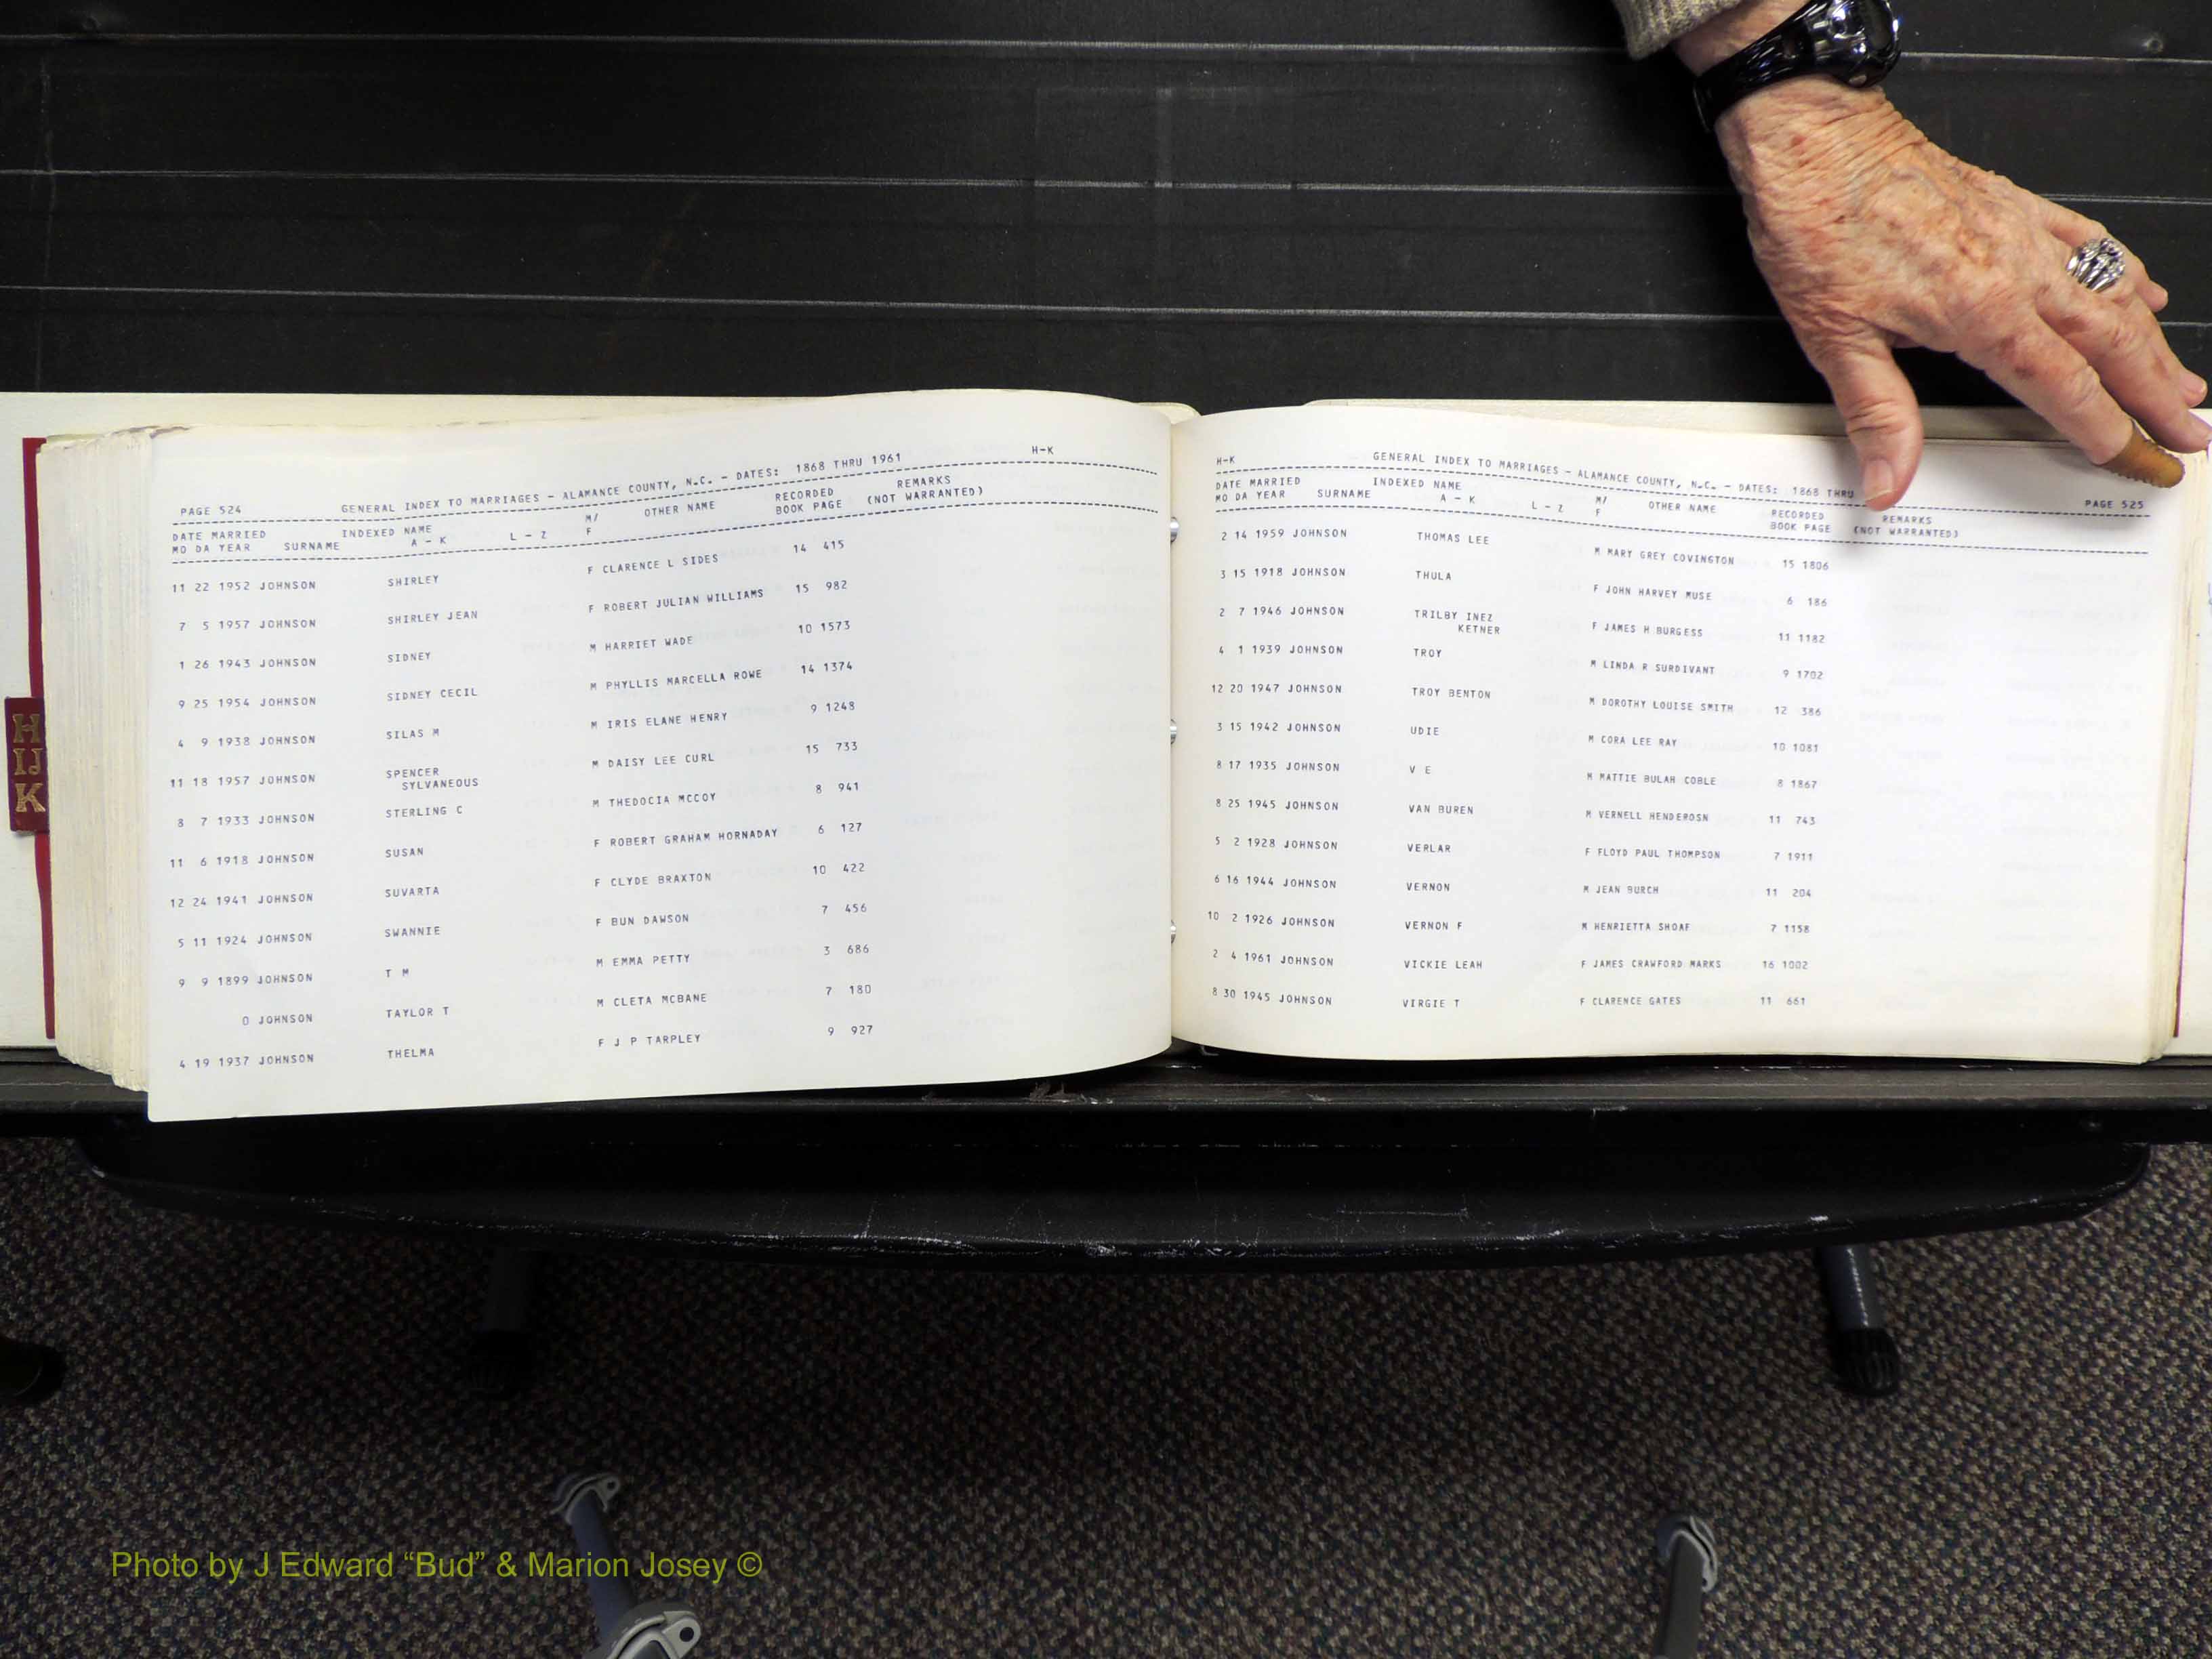 H
IJ
K
PAGE 524 GENERAL INDEX TO MARRIAGES - ALAMANCE COUNTY, N.C. - DATES: 1868 THRU 1961 H-K
DATE MARRIED INDEXED NAME M/ OTHER NAME RECORDED REMARKS
MO DA YEAR SURNAME A - K L - Z F BOOK PAGE (NOT WARRANTED)
11 22 1952 JOHNSON SHIRLEY F CLARENCE L SIDES 14 415
7 5 1957 JOHNSON SHIRLEY JEAN F ROBERT JULIAN WILLIAMS 15 982
1 26 1943 JOHNSON SIDNEY M HARRIET WADE 10 1573
9 25 1954 JOHNSON SIDNEY CECIL M PHYLLIS MARCELLA ROWE 14 1374
4 9 1938 JOHNSON SILAS M M IRIS ELANE HENRY 9 1248
11 18 1957 JOHNSON SPENCER M DAISY LEE CURL 15 733
SYLVANEOUS
8 7 1933 JOHNSON STERLING C M THEDOCIA MCCOY 8 941
11 6 1918 JOHNSON SUSAN F ROBERT GRAHAM HORNADAY 6 127
12 24 1941 JOHNSON SUVARTA F CLYDE BRAXTON 10 422
5 11 1924 JOHNSON SWANNIE F BUN DAWSON 7 456
9 9 1899 JOHNSON T M M EMMA PETTY 3 686
0 JOHNSON TAYLOR T M CLETA MCBANE 7 180
4 19 1937 JOHNSON THELMA F J P TARPLEY 9 927
H-K GENERAL INDEX TO MARRIAGES - ALAMANCE COUNTY, N.C. - DATES: 1868 THRU PAGE 525
DATE MARRIED INDEXED NAME M/ OTHER NAME RECORDED REMARKS
MO DA YEAR SURNAME A - K L - Z F BOOK PAGE (NOT WARRANTED)
2 14 1959 JOHNSON THOMAS LEE M MARY GREY COVINGTON 15 1806
3 15 1918 JOHNSON THULA F JOHN HARVEY MUSE 6 186
2 7 1946 JOHNSON TRILBY INEZ F JAMES H BURGESS 11 1182
KETNER
4 1 1939 JOHNSON TROY M LINDA R SURDIVANT 9 1702
12 20 1947 JOHNSON TROY BENTON M DOROTHY LOUISE SMITH 12 386
3 15 1942 JOHNSON UDIE M CORA LEE RAY 10 1081
8 17 1935 JOHNSON V E M MATTIE BULAH COBLE 8 1867
8 25 1945 JOHNSON VAN BUREN M VERNELL HENDEROSN 11 743
5 2 1928 JOHNSON VERLAR F FLOYD PAUL THOMPSON 7 1911
6 16 1944 JOHNSON VERNON M JEAN BURCH 11 204
10 2 1926 JOHNSON VERNON F M HENRIETTA SHOAF 7 1158
2 4 1961 JOHNSON VICKIE LEAH F JAMES CRAWFORD MARKS 16 1002
8 30 1945 JOHNSON VIRGIE T F CLARENCE GATES 11 661
Photo by J Edward “Bud” & Marion Josey ©